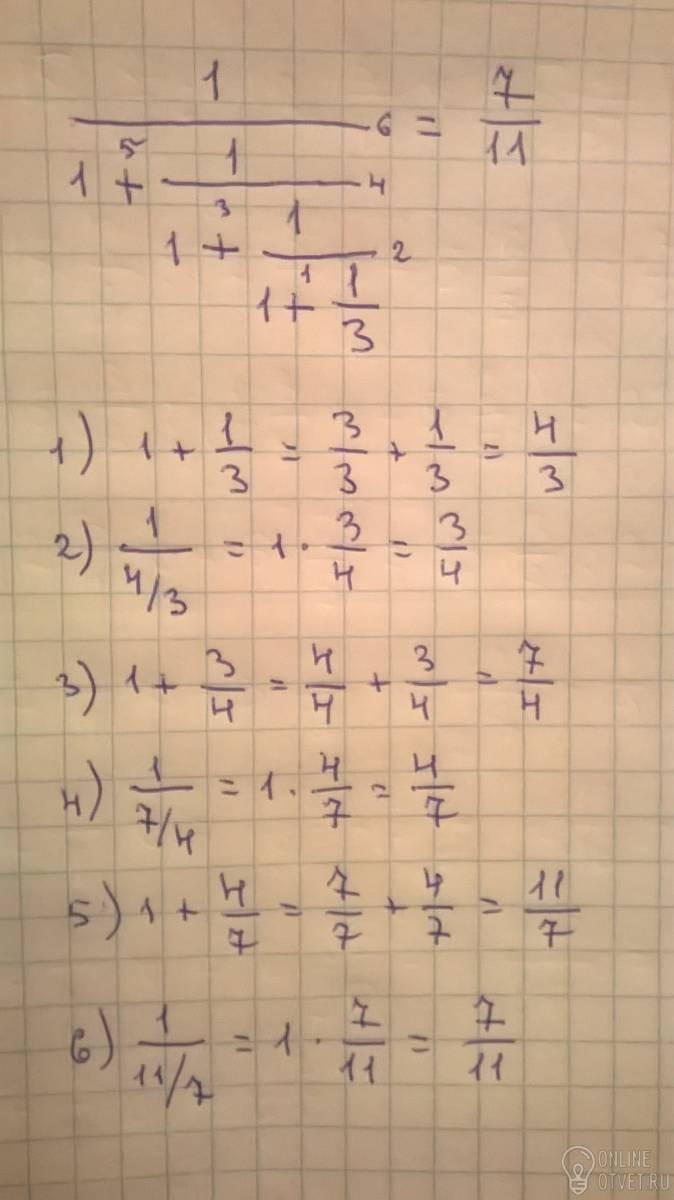 1/(1 + 1/(1 + 1/(1 + 1/3))) = 7/11
5 6
3 4
1 2
1) 1 + 1/3 = 3/3 + 1/3 = 4/3
2) 1/(4/3) = 1 · 3/4 = 3/4
3) 1 + 3/4 = 4/4 + 3/4 = 7/4
4) 1/(7/4) = 1 · 4/7 = 4/7
5) 1 + 4/7 = 7/7 + 4/7 = 11/7
6) 1/(11/7) = 1 · 7/11 = 7/11
ONLINE
OTVET.RU